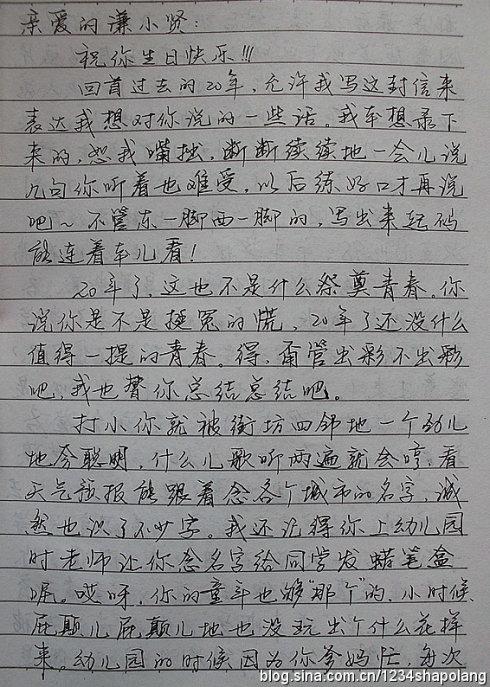 亲爱的谦小贤:
祝你生日快乐!!!
回首过去的20年,允许我写这封信来
表达我想对你说的一些话。我本想录下
来的,恕我嘴拙,断断续续地一会儿说
几句你听着也难受,以后练好口才再说
吧~不管东一脚西一脚的,写出来起码
能连着串儿看!
20年了,这也不是什么祭奠青春。你
说你是不是挺冤的慌,20年了还没什么
值得一提的青春。得,甭管出彩不出彩
吧,我也替你总结总结吧。
打小你就被街坊四邻地一个劲儿
地夸聪明,什么儿歌听两遍就会哼,看
天气预报能跟着念各个城市的名字,诚
然也识了不少字。我还记得你上幼儿园
时老师让你念名字给同学发蜡笔盒
呢。哎呀,你的童年也够“那个”的,小时候
屁颠儿屁颠儿地也没玩出个什么花样
来。幼儿园的时候因为你爹妈忙,每次
blog.sina.com.cn/1234shapolang